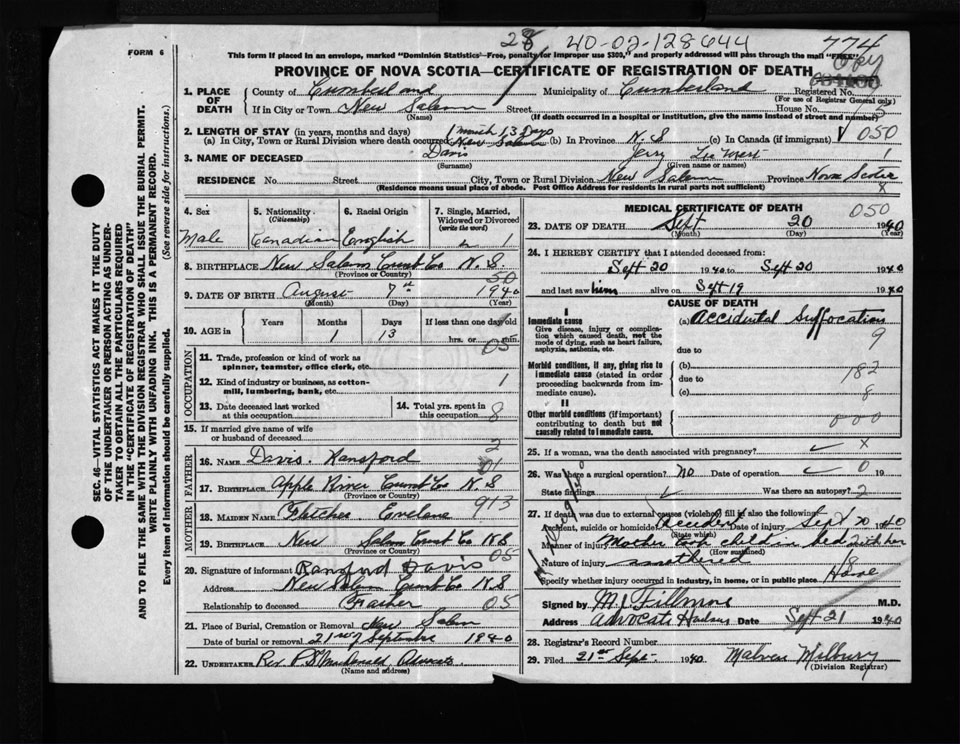 28 40-02-128644 774
FORM 6
This form if placed in an envelope, marked "Dominion Statistics—Free, penalty for improper use $300," and properly addressed will pass through the mail "FREE"
PROVINCE OF NOVA SCOTIA—CERTIFICATE OF REGISTRATION OF DEATH
1. PLACE OF DEATH
County of Cumberland Municipality of Cumberland Registered No.
(For use of Registrar General only)
If in City or Town New Salem Street House No.
(Name) (If death occurred in a hospital or institution, give the name instead of street and number)
2. LENGTH OF STAY (in years, months and days) 1 month 13 Days
(a) In City, Town or Rural Division where death occurred New Salem (b) In Province N.S (c) In Canada (if immigrant) 050
3. NAME OF DECEASED Davis Jerry 1
(Surname) (Given name or names)
RESIDENCE No. Street City, Town or Rural Division New Salem Province Nova Scotia
(Residence means usual place of abode. Post Office Address for residents in rural parts not sufficient) 8
4. Sex 5. Nationality (Citizenship) 6. Racial Origin 7. Single, Married, Widowed or Divorced (write the word)
Male Canadian English 1
8. BIRTHPLACE New Salem Cumb Co N.S
(Province or Country) 50
9. DATE OF BIRTH August 7th 1940
(Month) (Day) (Year)
10. AGE in Years Months Days If less than one day old
1 13 hrs. or min. 05
OCCUPATION
11. Trade, profession or kind of work as spinner, teamster, office clerk, etc.
12. Kind of industry or business, as cotton-mill, lumbering, bank, etc. 1
13. Date deceased last worked at this occupation 14. Total yrs. spent in this occupation 8
15. If married give name of wife or husband of deceased
2
FATHER
16. NAME Davis. Ransford 01
17. BIRTHPLACE Apple River Cumb Co N S
(Province or Country)
MOTHER
18. MAIDEN NAME Fletcher Evelene 913
19. BIRTHPLACE New Salem Cumb Co N S
(Province or Country) 05
20. Signature of informant Ransford Davis
Address New Salem Cumb Co N S
Relationship to deceased Father 05
21. Place of Burial, Cremation or Removal New Salem
Date of burial or removal 21st Septembre 1940
22. UNDERTAKER Rev. P. Macdonald
(Name and address)
MEDICAL CERTIFICATE OF DEATH 050
23. DATE OF DEATH Sept 20 1940
(Month) (Day) (Year)
24. I HEREBY CERTIFY that I attended deceased from:
Sept 20 1940 to Sept 20 1940
and last saw him alive on Sept 19 1940
CAUSE OF DEATH
I
Immediate cause (a) Accidental Suffocation
Give disease, injury or complication which caused death, not the mode of dying, such as heart failure, asphyxia, asthenia, etc.
due to 9
Morbid conditions, if any, giving rise to immediate cause (stated in order proceeding backwards from immediate cause).
(b) 182
due to
(c) 8
II
Other morbid conditions (if important) contributing to death but not causally related to immediate cause. 000
25. If a woman, was the death associated with pregnancy? X
26. Was there a surgical operation? No Date of operation 0 19
State findings Was there an autopsy? 2
27. If death was due to external causes (violence) fill in also the following:
Accident, suicide or homicide? Accident Date of injury Sept 20 1940
(State which)
Manner of injury Mother took child in bed with her
(How sustained)
Nature of injury smothered 8
Specify whether injury occurred in industry, in home, or in public place Home
Signed by M J Fillmore M.D.
Address Advocate Harbour Date Sept 21 1940
28. Registrar's Record Number
29. Filed 21st Sept. 1940 Milbury
(Division Registrar)
SEC. 46—VITAL STATISTICS ACT MAKES IT THE DUTY
OF THE UNDERTAKER OR PERSON ACTING AS UNDERTAKER
TO OBTAIN ALL THE PARTICULARS REQUIRED
IN THE "CERTIFICATE OF REGISTRATION OF DEATH"
AND TO FILE THE SAME WITH THE DIVISION REGISTRAR WHO SHALL ISSUE THE BURIAL PERMIT.
WRITE PLAINLY WITH UNFADING INK. THIS IS A PERMANENT RECORD.
Every item of information should be carefully supplied. (See reverse side for instructions.)